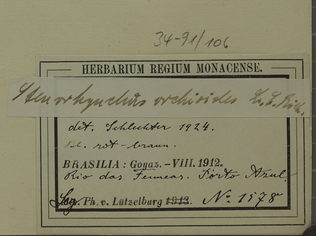 34-91/106
HERBARIUM REGIUM MONACENSE.
Stenorhynchus orchioides L. C. Rich.
det. Schlechter 1924.
rot-braun.
BRASILIA: Goyaz. - VIII. 1912.
Rio das Porto
Leg. Th. v. Lützelburg 1912 No. 1578